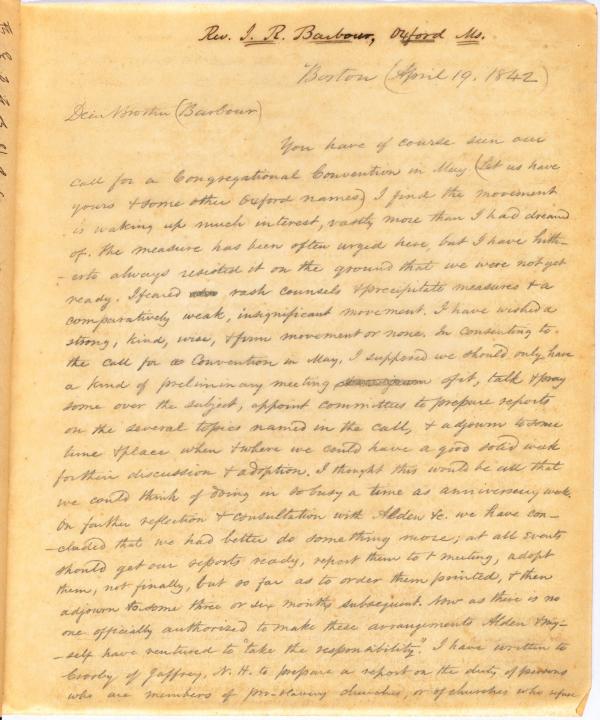 Rev. I. R. Barbour, Oxford Ms.
Boston (April 19. 1842)
Dear Brother (Barbour)
You have of course seen our
call for a Congregational Convention in May (Let us have
yours & some other Oxford names) I find the movement
is waking up much interest, vastly more than I had dreamd
of. The measure has been often urged here, but I have hith-
-erto always resisted it on the ground that we were not yet
ready. I feared rash counsels & precipitate measures & a
comparatively weak, insignificant movement. I have wished a
strong, kind, wise, & firm movement or none. In consenting to
the call for a Convention in May, I supposed we should only have
a kind of preliminary meeting of it, talk & pray
some over the subject, appoint committees to prepare reports
on the several topics named in the call, & adjourn to some
time & place when & where we could have a good solid week
for their discussion & adoption. I thought this would be all that
we could think of doing in so busy a time as anniversary week.
On further reflection & consultation with Alden &c. we have con-
-cluded that we had better do something more; at all events
should get our reports ready, report them to meeting, adopt
them, not finally, but so far as to order them printed, & then
adjourn to some three or six months subsequent. Now as there is no
one officially authorized to make these arrangements Alden & my-
-self have ventured to "take the responsibility." I have written to
Crosby of Jaffrey, N. H. to prepare a report on the duty of persons
who are members of pro-slavery churches, or of churches who refuse